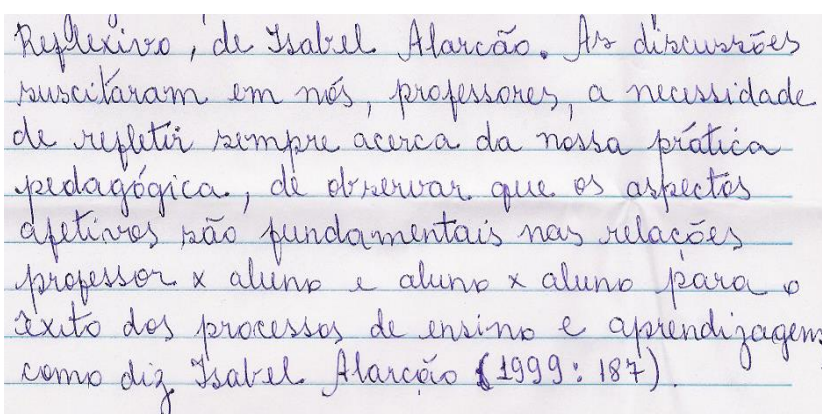 Reflexivo, de Isabel Alarcão. As discussões
suscitaram em nós, professores, a necessidade
de refletir sempre acerca da nossa prática
pedagógica, de observar que os aspectos
afetivos são fundamentais nas relações
professor x aluno e aluno x aluno para o
êxito dos processos de ensino e aprendizagem,
como diz Isabel Alarcão (1999: 187).